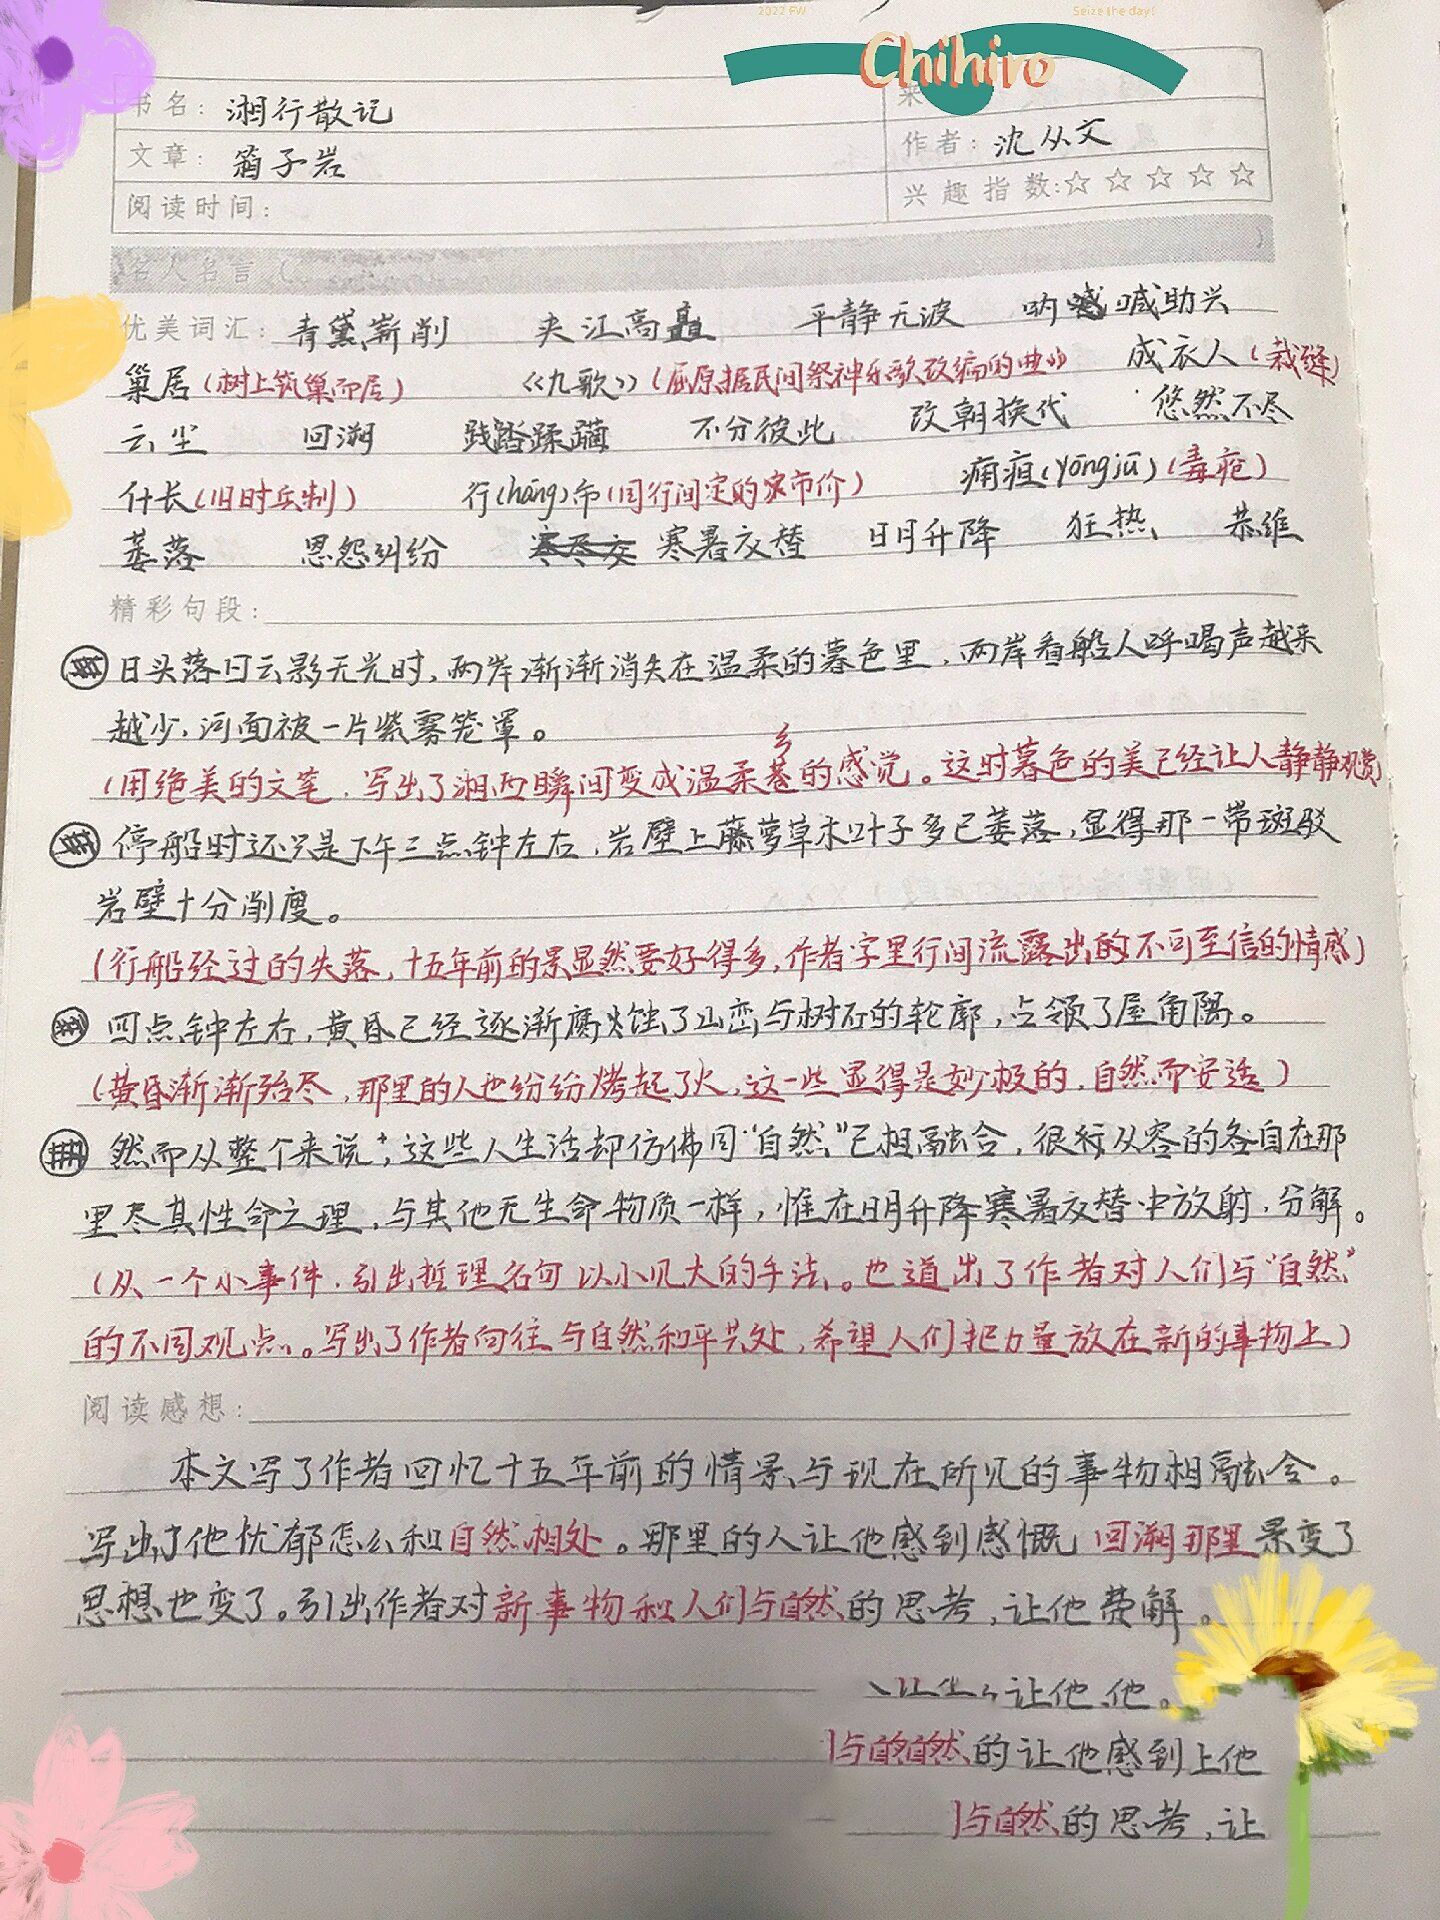 2022 FW
Seize the day!
Chihiro
书名: 湘行散记
来
文章: 箱子岩
作者: 沈从文
阅读时间:
兴趣指数:☆☆☆☆☆
名人名言
优美词汇: 青黛崭削 夹江高矗 平静无波 呐喊助兴
巢居(树上筑巢而居) 《九歌》(屈原据民间祭神乐歌改编的曲) 成衣人(裁缝)
云尘 回溯 践踏蹂躏 不分彼此 改朝换代 悠然不尽
什长(旧时兵制) 行(háng)市(同行间定的市价) 痈疽(yōngjū)(毒疮)
萎落 恩怨纠纷 寒暑交替 日月升降 狂热 恭维
精彩句段:
日头落日云影无光时,两岸渐渐消失在温柔的暮色里,两岸看船人呼喝声越来
越少,河面被一片紫雾笼罩。
(用绝美的文笔,写出了湘西瞬间变成温柔乡的感觉。这时暮色的美已经让人静静观赏)
停船时还只是下午三点钟左右,岩壁上藤萝草木叶子多已萎落,显得那一带斑驳
岩壁十分削廋。
(行船经过的失落,十五年前的景显然要好得多,作者字里行间流露出的不可至信的情感)
四点钟左右,黄昏已经逐渐腐蚀了山峦与树石的轮廓,占领了屋角隅。
(黄昏渐渐殆尽,那里的人也纷纷烤起了火,这一些显得是妙极的,自然而安适)
然而从整个来说,这些人生活却仿佛同“自然”已相融合,很从容的各自在那
里尽其性命之理,与其他无生命物质一样,惟在日月升降寒暑交替中放射,分解。
(从一个小事件,引出哲理名句以小见大的手法。也道出了作者对人们与“自然”
的不同观点。写出了作者向往与自然和平共处,希望人们把力量放在新的事物上)
阅读感想:
本文写了作者回忆十五年前的情景与现在所见的事物相融合。
写出了他忧郁怎么和自然相处。那里的人让他感到感慨 回溯那里景变了
思想也变了。引出作者对新事物和人们与自然的思考,让他费解。
让他 他。
与自然的让他感到上他
与自然的思考,让